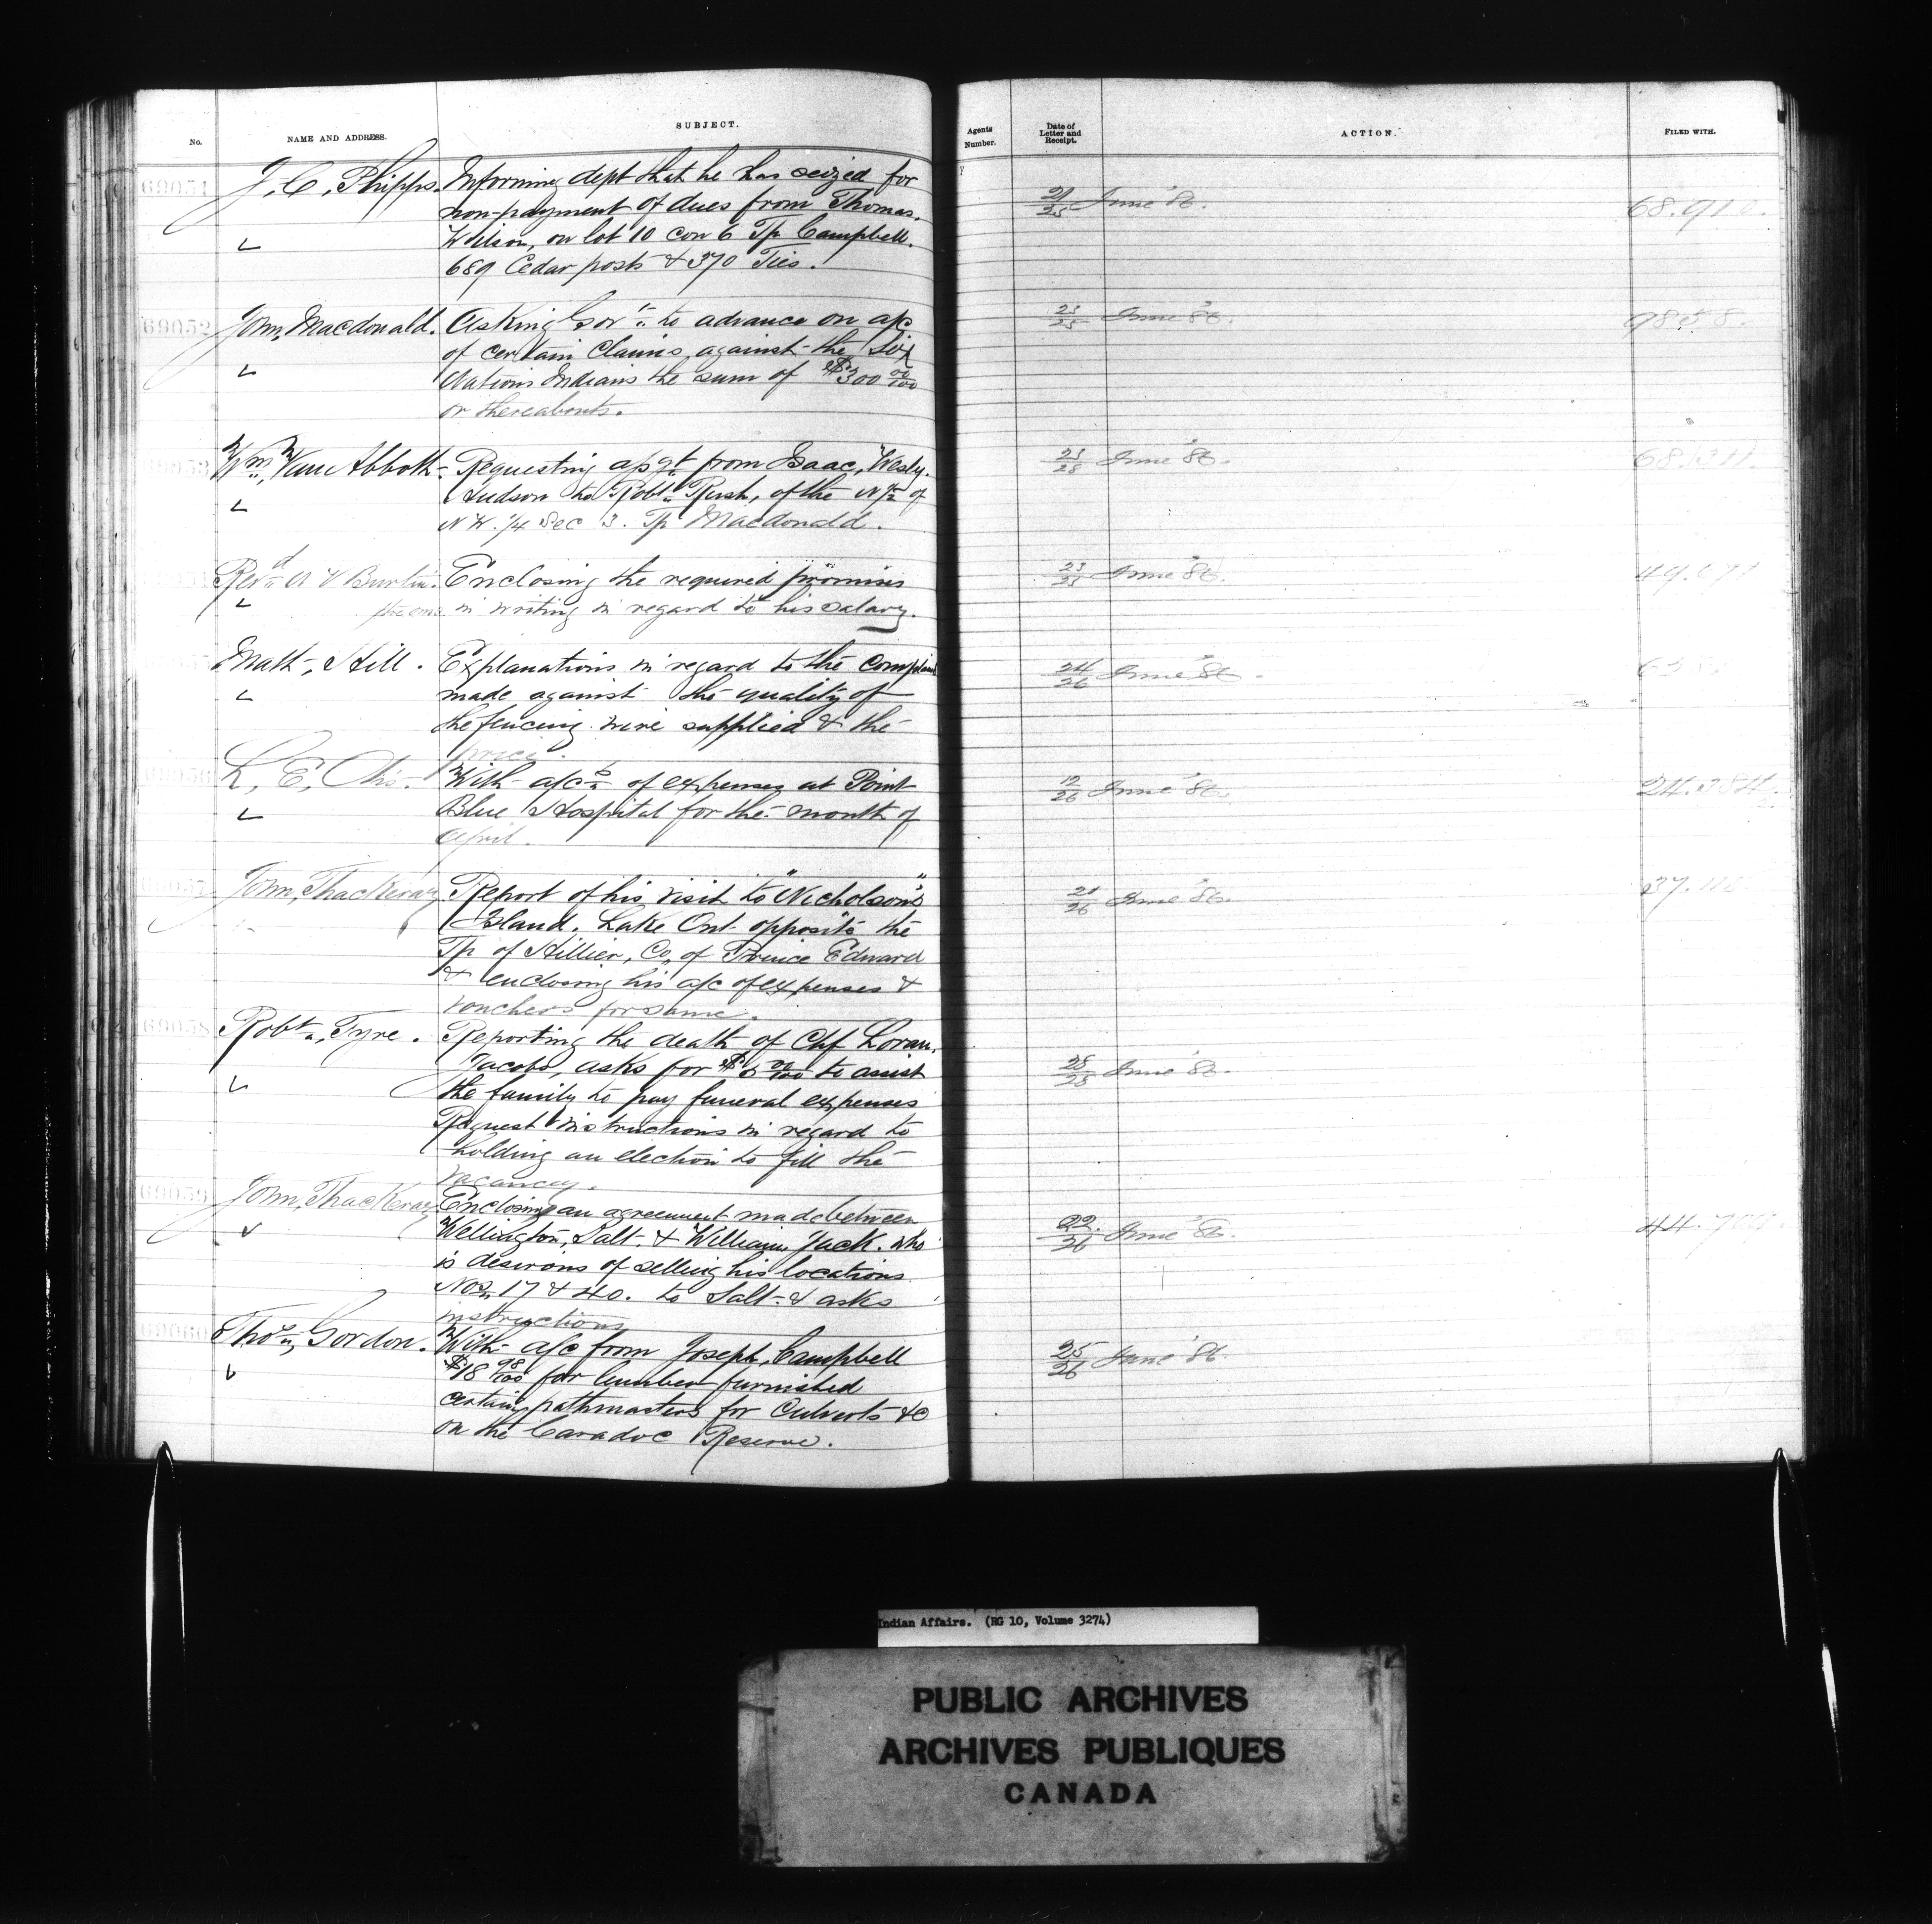 No.
NAME AND ADDRESS.
SUBJECT.
Agents Number.
Date of Letter and Receipt.
ACTION.
FILED WITH.
69051
J. C. Phipps. Informing dept that he has seized for
non-payment of dues from Thomas.
Wilson, on lot 10 con 6 Tp Campbell.
689 Cedar posts & 370 Ties.
21/25 June '86.
68.910.
69052
John, Macdonald. Asking Govt to advance on a/c
of certain claims, against the Six
Nations Indians the sum of $300 00/100
or thereabouts.
23/25 June '86.
Wm, Van Abbott. Requesting asgt from Isaac, Wesly.
Hudson to Robt Rush, of the N 1/2 of
N W. 1/4 Sec 3. Tp Macdonald.
23/25 June '86.
Revd Enclosing the required promises
in writing in regard to his salary.
23/25 June '86.
Matt, Hill. Explanations in regard to the complaint
made against the quality of
the fencing wire supplied & the
price.
24/26 June '86.
69056
L, E, Otis. With a/cs of expenses at Point
Blue Hospital for the month of
April.
12/26 June '86.
69057
John, Thackeray Report of his visit to "Nicholson's"
Island. Lake Ont opposite the
Tp of Hillier, Co, of Prince Edward
& enclosing his a/c of expenses &
vouchers for same.
21/26 June '86.
69058
Robt, Tyre. Reporting the death of Chf Loran,
Jacobs, asks for $5 00/100 to assist
the family to pay funeral expenses
Request instructions in regard to
holding an election to fill the
vacancy.
25/25 June '86.
69059
John, Thackeray Enclosing an agreement made between
Wellington, Salt. & William, Jack. who
is desirous of selling his locations
Nos 17 & 40. to Salt. & asks
instructions
22/26 June '86.
69060
Thos, Gordon. With a/c from Joseph, Campbell
$18 98/100 for lumber furnished
certain pathmasters for Culverts &c
on the Caradoc Reserve.
25/26 June '86.
Indian Affairs. (RG 10, Volume 3274)
PUBLIC ARCHIVES
ARCHIVES PUBLIQUES
CANADA